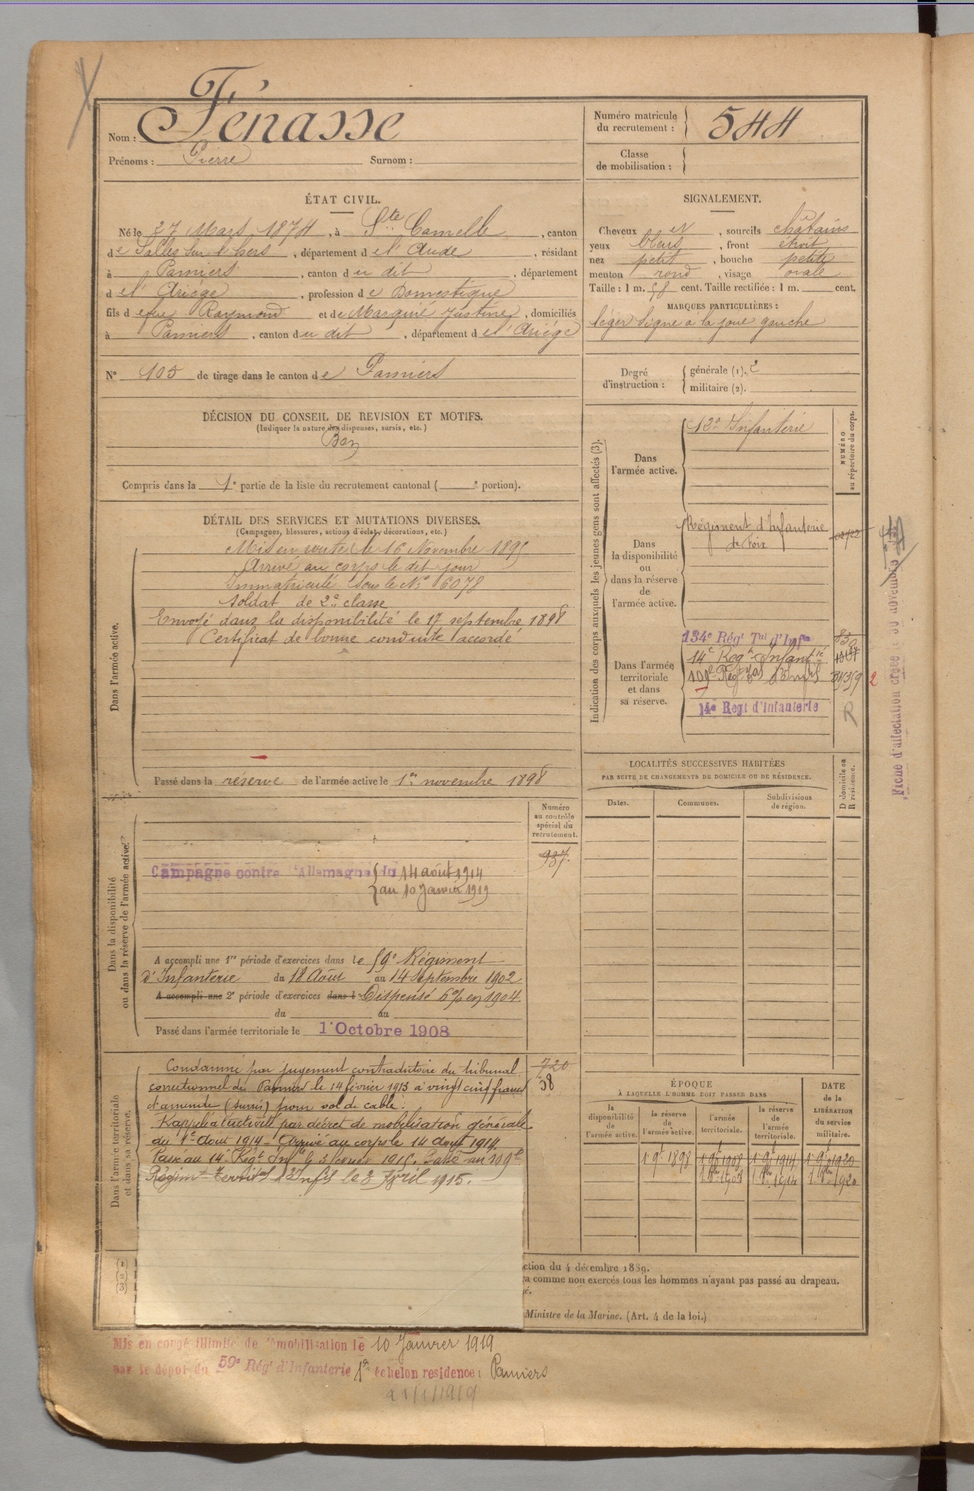 Nom : Fénasse
Prénoms : Pierre Surnom :
Numéro matricule du recrutement : 544
Classe de mobilisation :
ÉTAT CIVIL.
Né le 27 Mars 1874, à Ste Camelle, canton
de Salles sur l'hers, département de l'Aude, résidant
à Pamiers, canton du dit, département
de l'Ariège, profession de Domestique
fils de feu Raymond et de Justine, domiciliés
à Pamiers, canton du dit, département de l'Ariège
N° 105 de tirage dans le canton de Pamiers
SIGNALEMENT.
Cheveux et, sourcils châtains
yeux bleus, front étroit
nez petit, bouche petite
menton rond, visage ovale
Taille : 1 m. 58 cent. Taille rectifiée : 1 m. cent.
MARQUES PARTICULIÈRES :
léger signe à la joue gauche
Degré d'instruction : générale (1). 2
militaire (2).
DÉCISION DU CONSEIL DE REVISION ET MOTIFS.
(Indiquer la nature des dispenses, sursis, etc.)
Bon
Compris dans la 1e partie de la liste du recrutement cantonal ( e portion).
DÉTAIL DES SERVICES ET MUTATIONS DIVERSES.
(Campagnes, blessures, actions d'éclat, décorations, etc.)
Dans l'armée active.
Mis en route le 16 Novembre 1895
Arrivé au corps le dit jour
Immatriculé sous le N° 6078
soldat de 2e classe
Envoyé dans la disponibilité le 17 septembre 1898
Certificat de bonne conduite accordé
Passé dans la réserve de l'armée active le 1er novembre 1898
Indication des corps auxquels les jeunes gens sont affectés (3).
NUMÉRO au répertoire du corps.
Dans l'armée active.
12e Infanterie
Dans la disponibilité ou dans la réserve de l'armée active.
Régiment d'Infanterie
de Foix
Dans l'armée territoriale et dans sa réserve.
134e Régt Tal d'Infie
14e Régt Infantie
14e Regt d'Infanterie
R
2
LOCALITÉS SUCCESSIVES HABITÉES
PAR SUITE DE CHANGEMENTS DE DOMICILE OU DE RÉSIDENCE.
Dates. Communes. Subdivisions de région. D domicile ou R résidence.
Dans la disponibilité ou dans la réserve de l'armée active.
Numéro au contrôle spécial du recrutement.
987
Campagne contre l'Allemagne du 14 août 1914
au 10 Janvier 1919
A accompli une 1re période d'exercices dans le 59e Régiment
d'Infanterie du 18 Août au 14 Septembre 1902
A accompli une 2e période d'exercices dans l Dispensé 6% en 1904
du au
Passé dans l'armée territoriale le 1 Octobre 1908
Dans l'armée territoriale et dans sa réserve.
Condamné par jugement contradictoire du tribunal
correctionnel de Pamiers le 14 février 1913 à vingt cinq francs
d'amende (sursis) pour vol de cable.
Rappelé à l'activité par décret de mobilisation générale
du 1er Aout 1914 - Arrivé au corps le 14 Aout 1914.
Passé au 14e Régt Infie le 3 1915. Passé au
Régimt Territal d'Infie le 3 Avril 1915.
720
38
ÉPOQUE
À LAQUELLE L'HOMME DOIT PASSER DANS
la disponibilité de l'armée active. la réserve de l'armée active. l'armée territoriale. la réserve de l'armée territoriale.
DATE de la LIBÉRATION du service militaire.
(1)
(2)
(3)
ction du 4 décembre 1889.
ra comme non exercés tous les hommes n'ayant pas passé au drapeau.
Ministre de la Marine. (Art. 4 de la loi.)
Mis en congé illimité de démobilisation le 10 Janvier 1919
par le dépôt du 59e Régt d'Infanterie 1er échelon residence : Pamiers